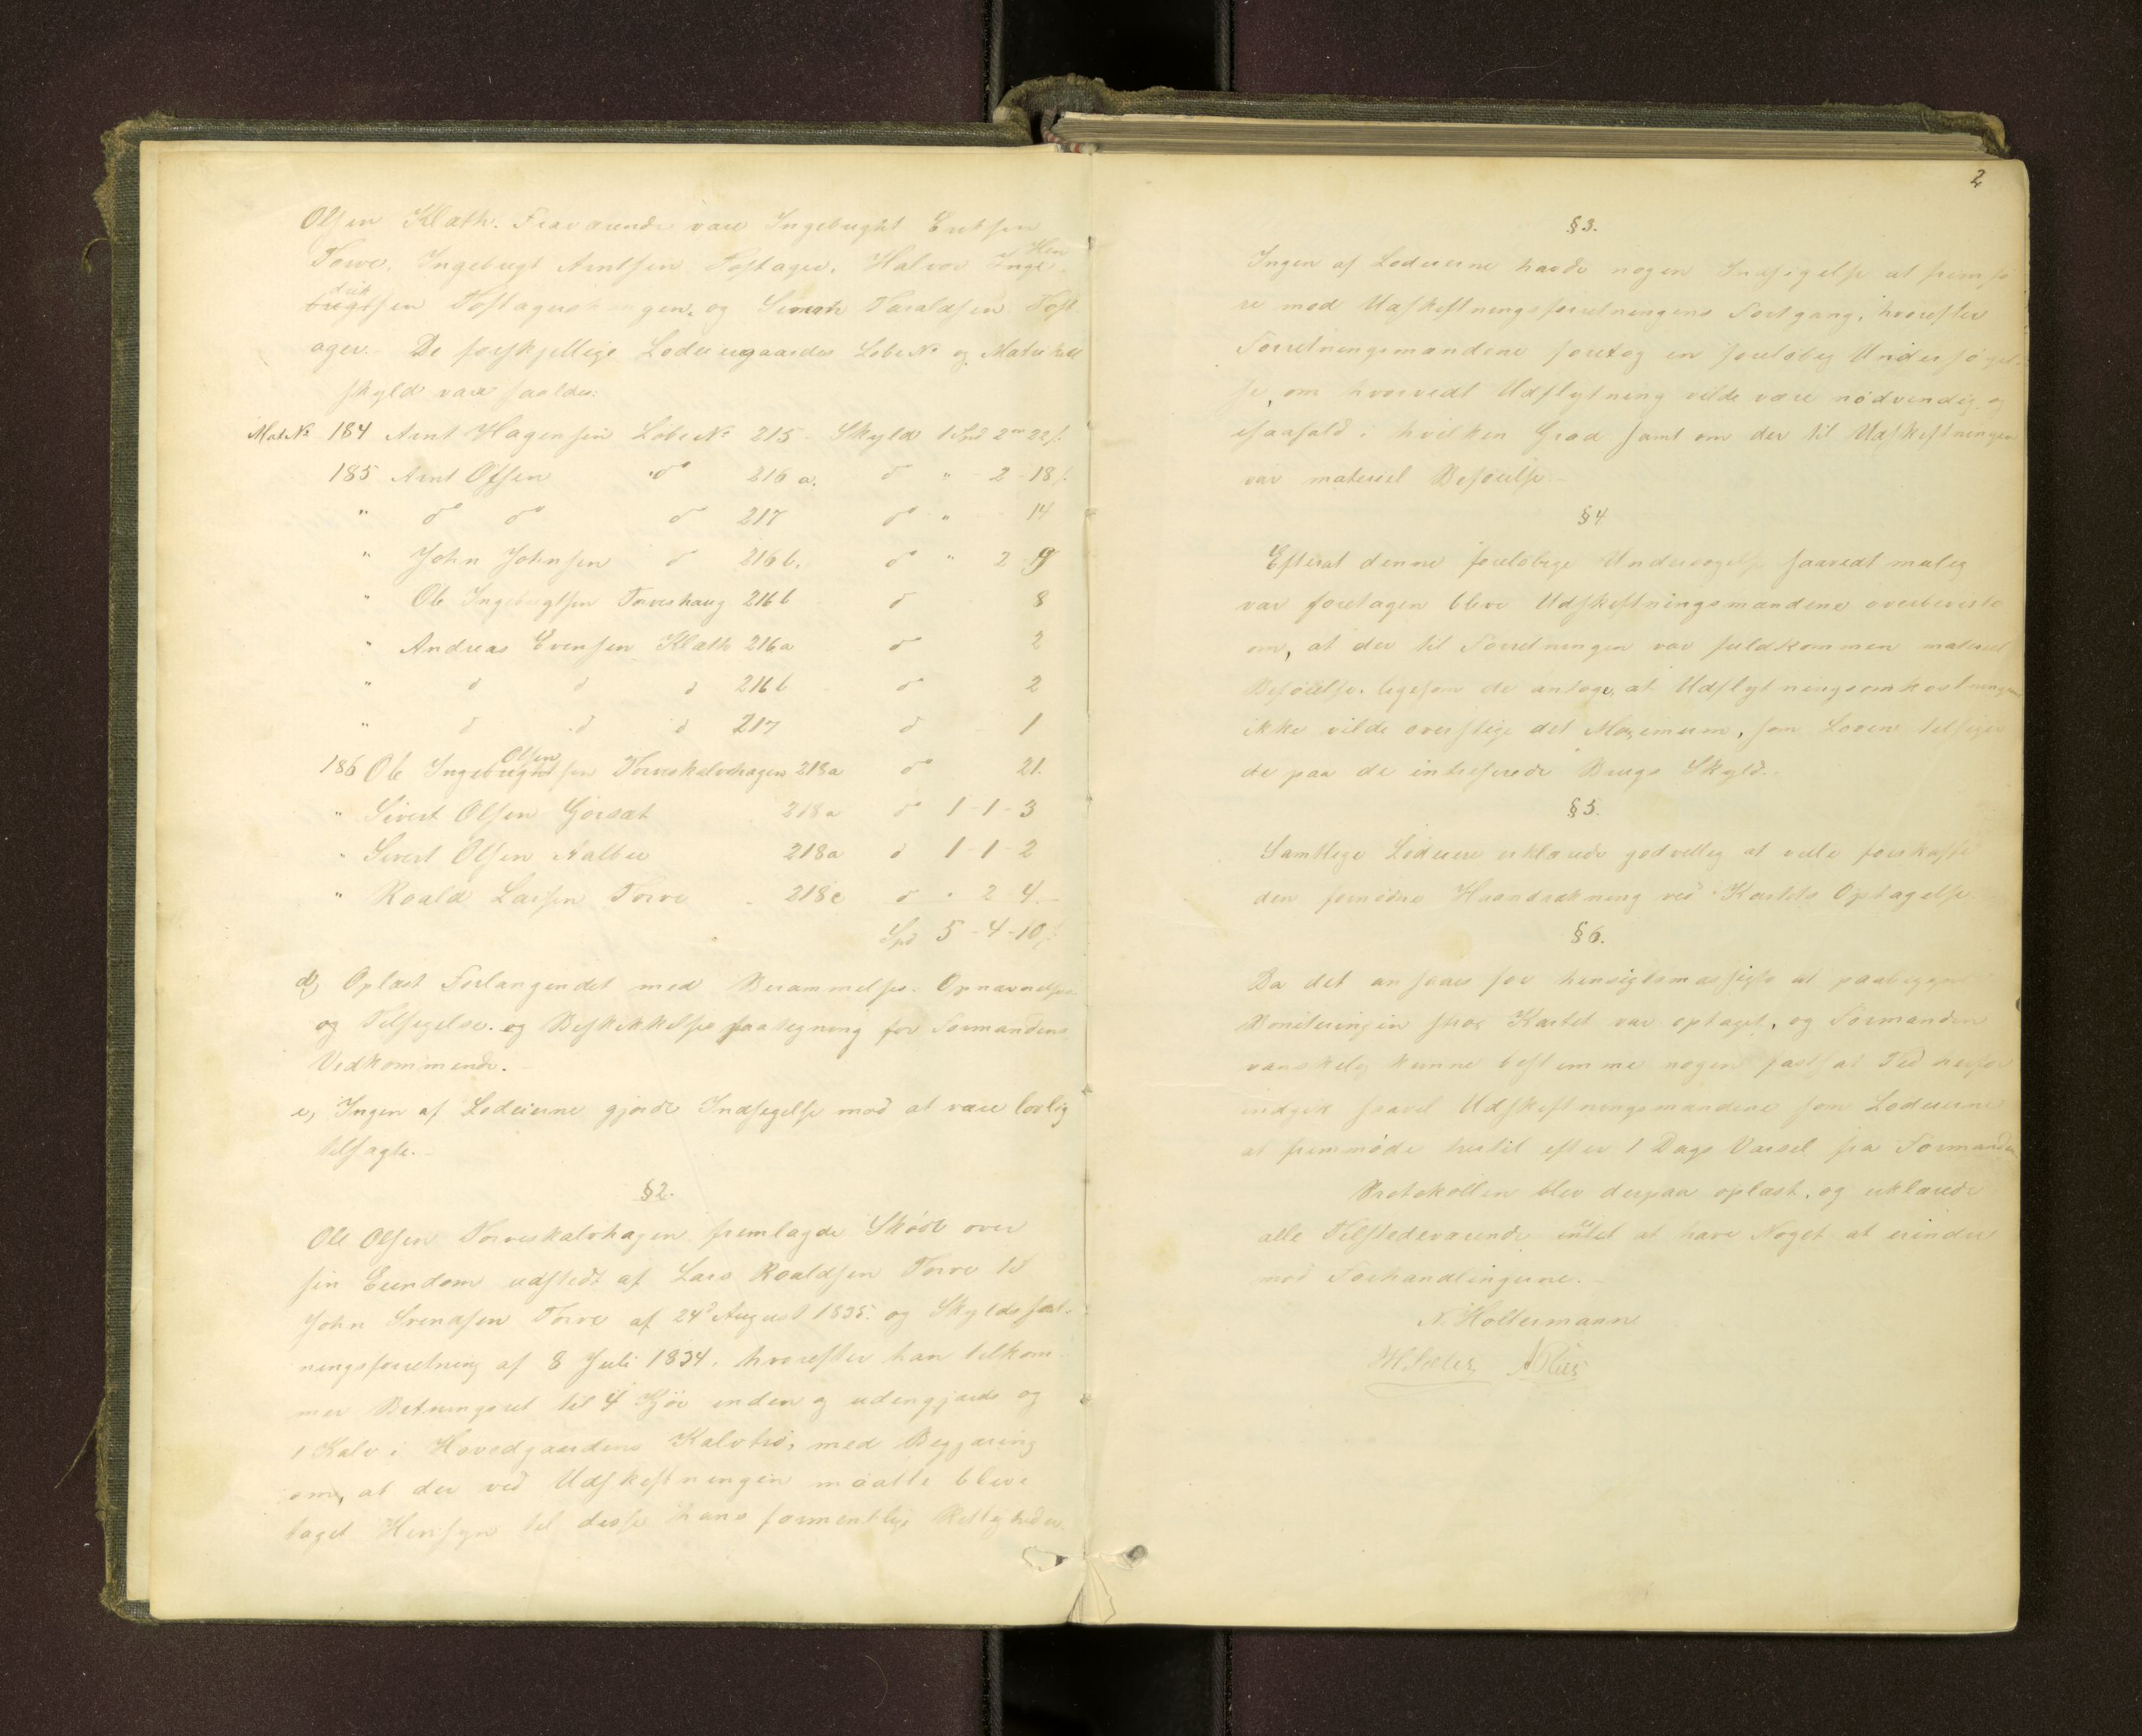 Olsen Klæth. Fraværende vare Ingebright Erichsen
Torve, Ingebrigt Arntsen Tostager, Halvor Inge Hen
brigtsen drik Tostagerhaugen, og Simon Haraldsen Tost
ager. De forskjellige Lodeiergaardes Løbe No og Matrikul
skyld vare saaledes:
Mat No 184 Arnt Hagensen Løbe No 215 Skyld 1 Spd 2 ort 22 s.
185 Arnt Olsen do 216 a. do " - 2 - 18 s.
" do do do 217 do " 14
" John Johnsen do 216 b. do " 2 - 9
" Ole Ingebrigtsen Torveshaug 216 b do 8
" Andreas Evensen Klæth 216a do 2
" do do do 216 b do 2
" do do do 217 do 1
186 Ole Ingebrigtsen Olsen Torveskalvehagen 218a do 21.
" Sivert Olsen Gjorsæt 218a do 1 - 1 - 3
" Sivert Olsen Aalbu 218a do 1 - 1 - 2
" Roald Larsen Torve 218c do " 2 4.
Spd 5 - 4 - 10 s.
d, Oplæst Forlangendet med Berammelses- Opnævnelses-
og Tilsigelse- og Beskikkelsespaategning for Formandens
Vedkommende.
e, Ingen af Lodeierne gjorde Indsigelse mod at være lovlig
tilsagte.
§2.
Ole Olsen Torveskalvhagen fremlagde Skjøde over
sin Eiendom udstedt af Lars Roaldsen Torve til
John Svendsen Torve af 24de August 1835. og Skyldssæt-
ningsforretning af 8 Juli 1834, hvorefter han tilkom-
mer Betningsret til 4 Kjør inden og udengjærds og
1 Kalv i Hovedgaardens Kalvtrø, med Begjæring
om, at der ved Udskiftningen maatte blive
taget Hensyn til disse hans formentlige Rettigheder.
2
§3.
Ingen af Lodeierne havde nogen Indsigelse at fremfø
re mod Udskiftningsforretningens Fortgang, hvorefter
Forretningsmændene foretog en foreløbig Undersøgel-
se, om hvorvidt Udflytning vilde være nødvendig, og
isaafald i hvilken Grad samt om der til Udskiftningen
var materiel Beføielse.
§4
Efterat denne foreløbige Undersøgelse saavidt mulig
var foretagen bleve Udskiftningsmændene overbeviste
om, at der til Forretningen var fuldkommen materiel
Beføielse, ligesom de antoge, at Udflytningsomkostningerne
ikke vilde overstige det Maximum, som Loven tilsiger
de paa de interesserede Brugs Skyld.
§5.
Samtlige Lodeiere erklærede godvillig at ville forskaffe
den fornødne Haandrækning ved Kartets Optagelse.
§6.
Da det ansaaes for hensigtsmæssigst at paabegynde
Boniteringen strax Kartet var optaget, og Formanden
vanskelig kunne bestemme nogen fastsat Tid herfor
indgik saavel Udskiftningsmændene som Lodeierne
at fremmøde hertil efter 1 Dags Varsel fra Formanden
Protokollen blev derpaa oplæst, og erklærede
alle Tilstedeværende intet at have Noget at erindre
mod Forhandlingerne.
N. Holtermann